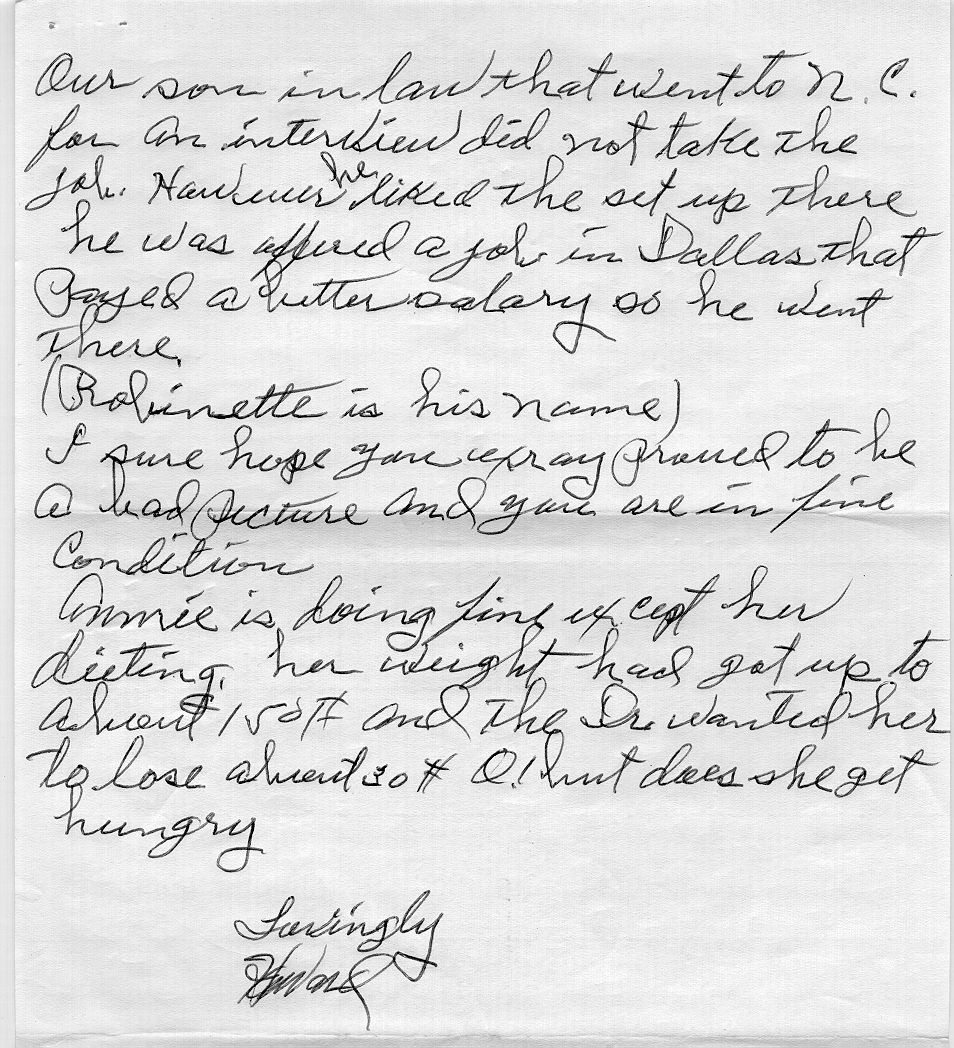 Our son in law that went to N. C.
for an interview did not take the
job. However he liked the set up there
he was offered a job in Dallas that
payed a better salary so he went
there.
(Robinette is his name)
I sure hope you xray proved to be
a bad picture and you are in fine
Condition
Annie is doing fine except her
dieting. her weight had got up to
about 150# and the Dr. wanted her
to lose about 30# O! but does she get
hungry
Lovingly
Howard